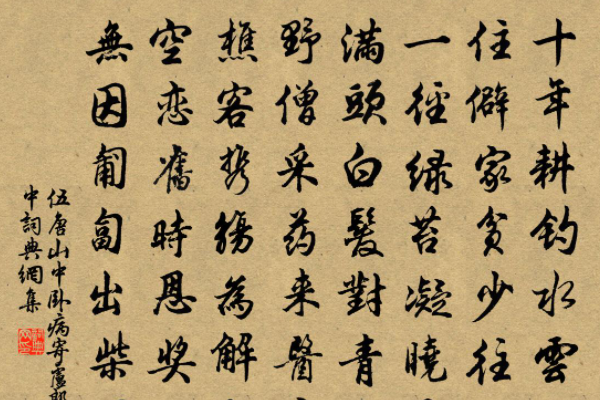 十年耕钓水雲
住僻家貧少往
一徑绿苔凝曉
滿頭白髮對青
野僧采药来醫
樵客携觴為解
空恋舊時恩奖
無因匍匐出柴
伍唐山中卧病寄盧郎
中詞典網集